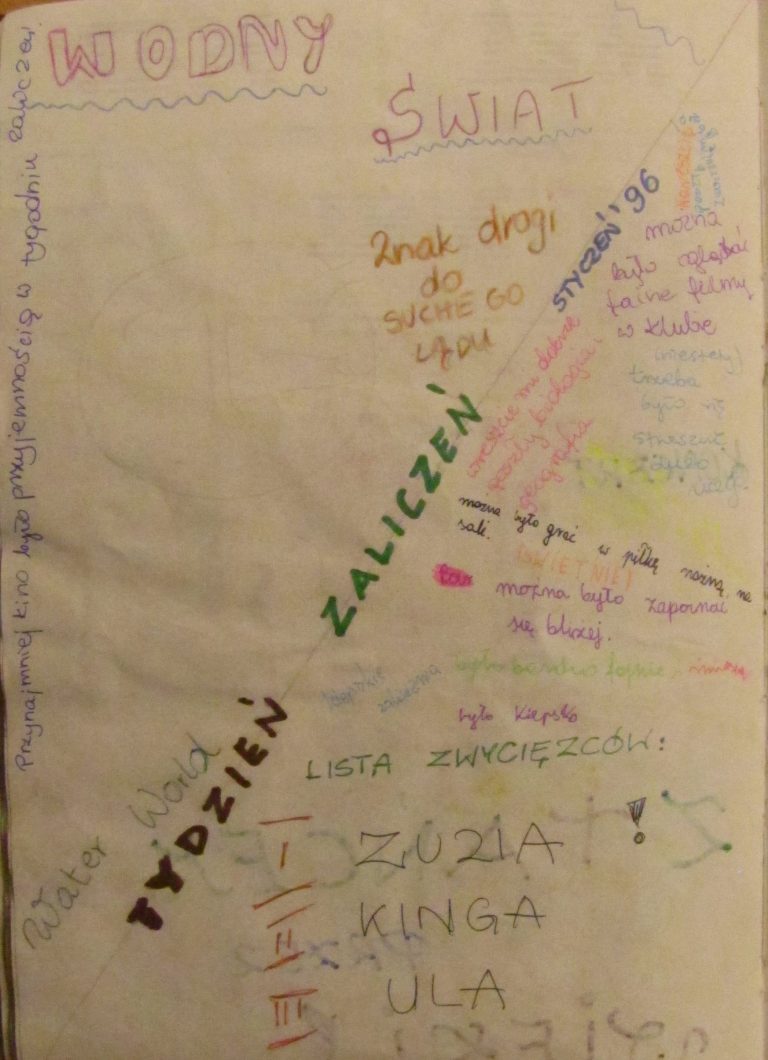 WODNY
ŚWIAT
Przynajmniej kino było przyjemnością w tygodniu zaliczeń
Znak drogi
do
SUCHEGO
LĄDU
STYCZEŃ '96
można
było oglądać
fajne filmy
w klubie
(niestety)
trzeba
było się
wreszcie mi dobrze
poszły biologia i
geografia
ZALICZEŃ
można było grać w piłkę nożną na
sali.
ŚWIETNIE!
można było zapoznać
się bliżej.
było bardzo fajnie
było kiepsko
TYDZIEŃ
Water World
LISTA ZWYCIĘZCÓW:
I ZUZIA !
II KINGA
III ULA